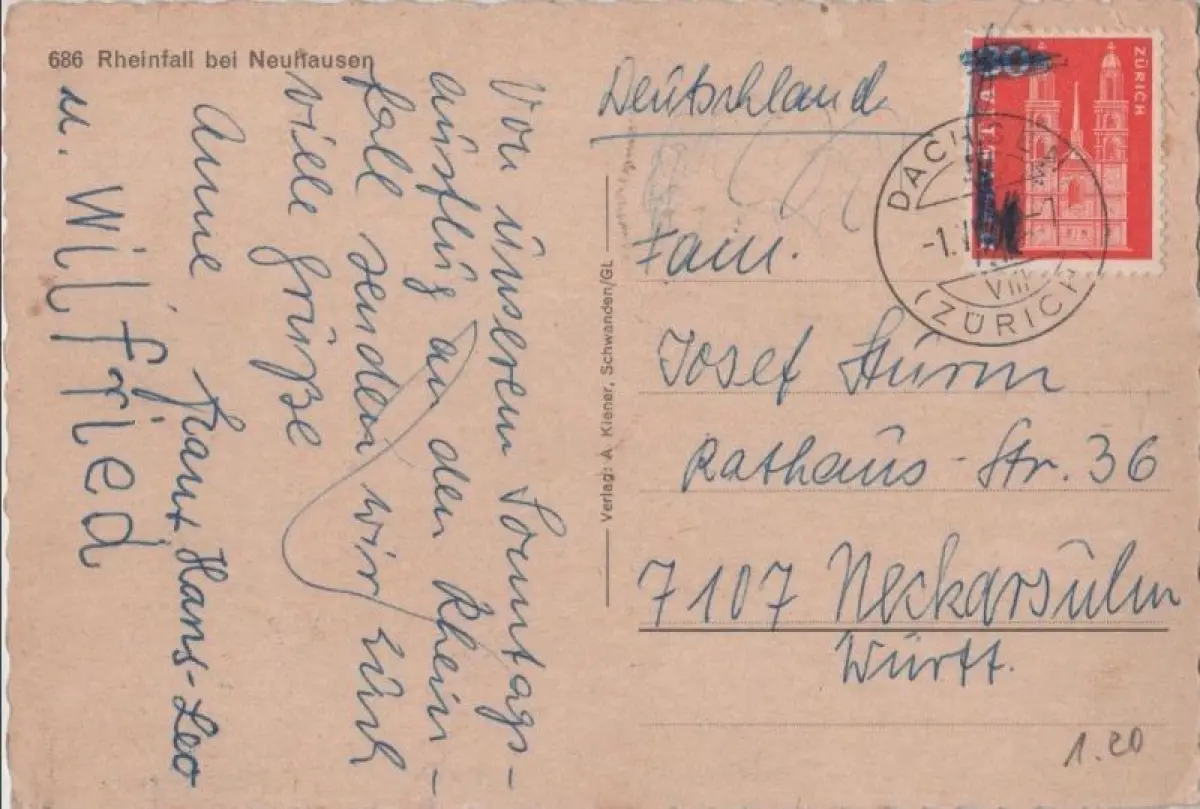 686 Rheinfall bei Neuhausen
Von unserem Sonntags-
ausflug an den Rhein-
fall senden wir Euch
viele Grüße
Anne, Hans-Leo
u. Wilfried
Verlag: A. Kiener, Schwanden/GL
Deutschland
ZÜRICH
DACHSEN
-1.
VIII
(ZÜRICH)
Fam.
Josef Sturm
Rathaus-Str. 36
7107 Neckarsulm
Württ.
1.20